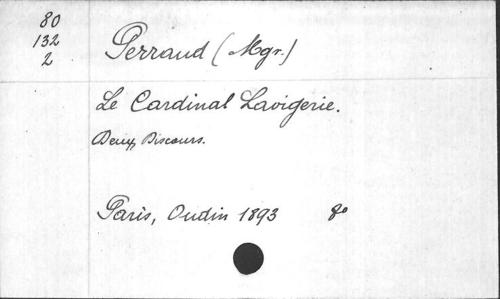 80
132
2
Perraud (Mgr.)
Le Cardinal Lavigerie.
Deux Discours.
Paris, Oudin 1893 8o